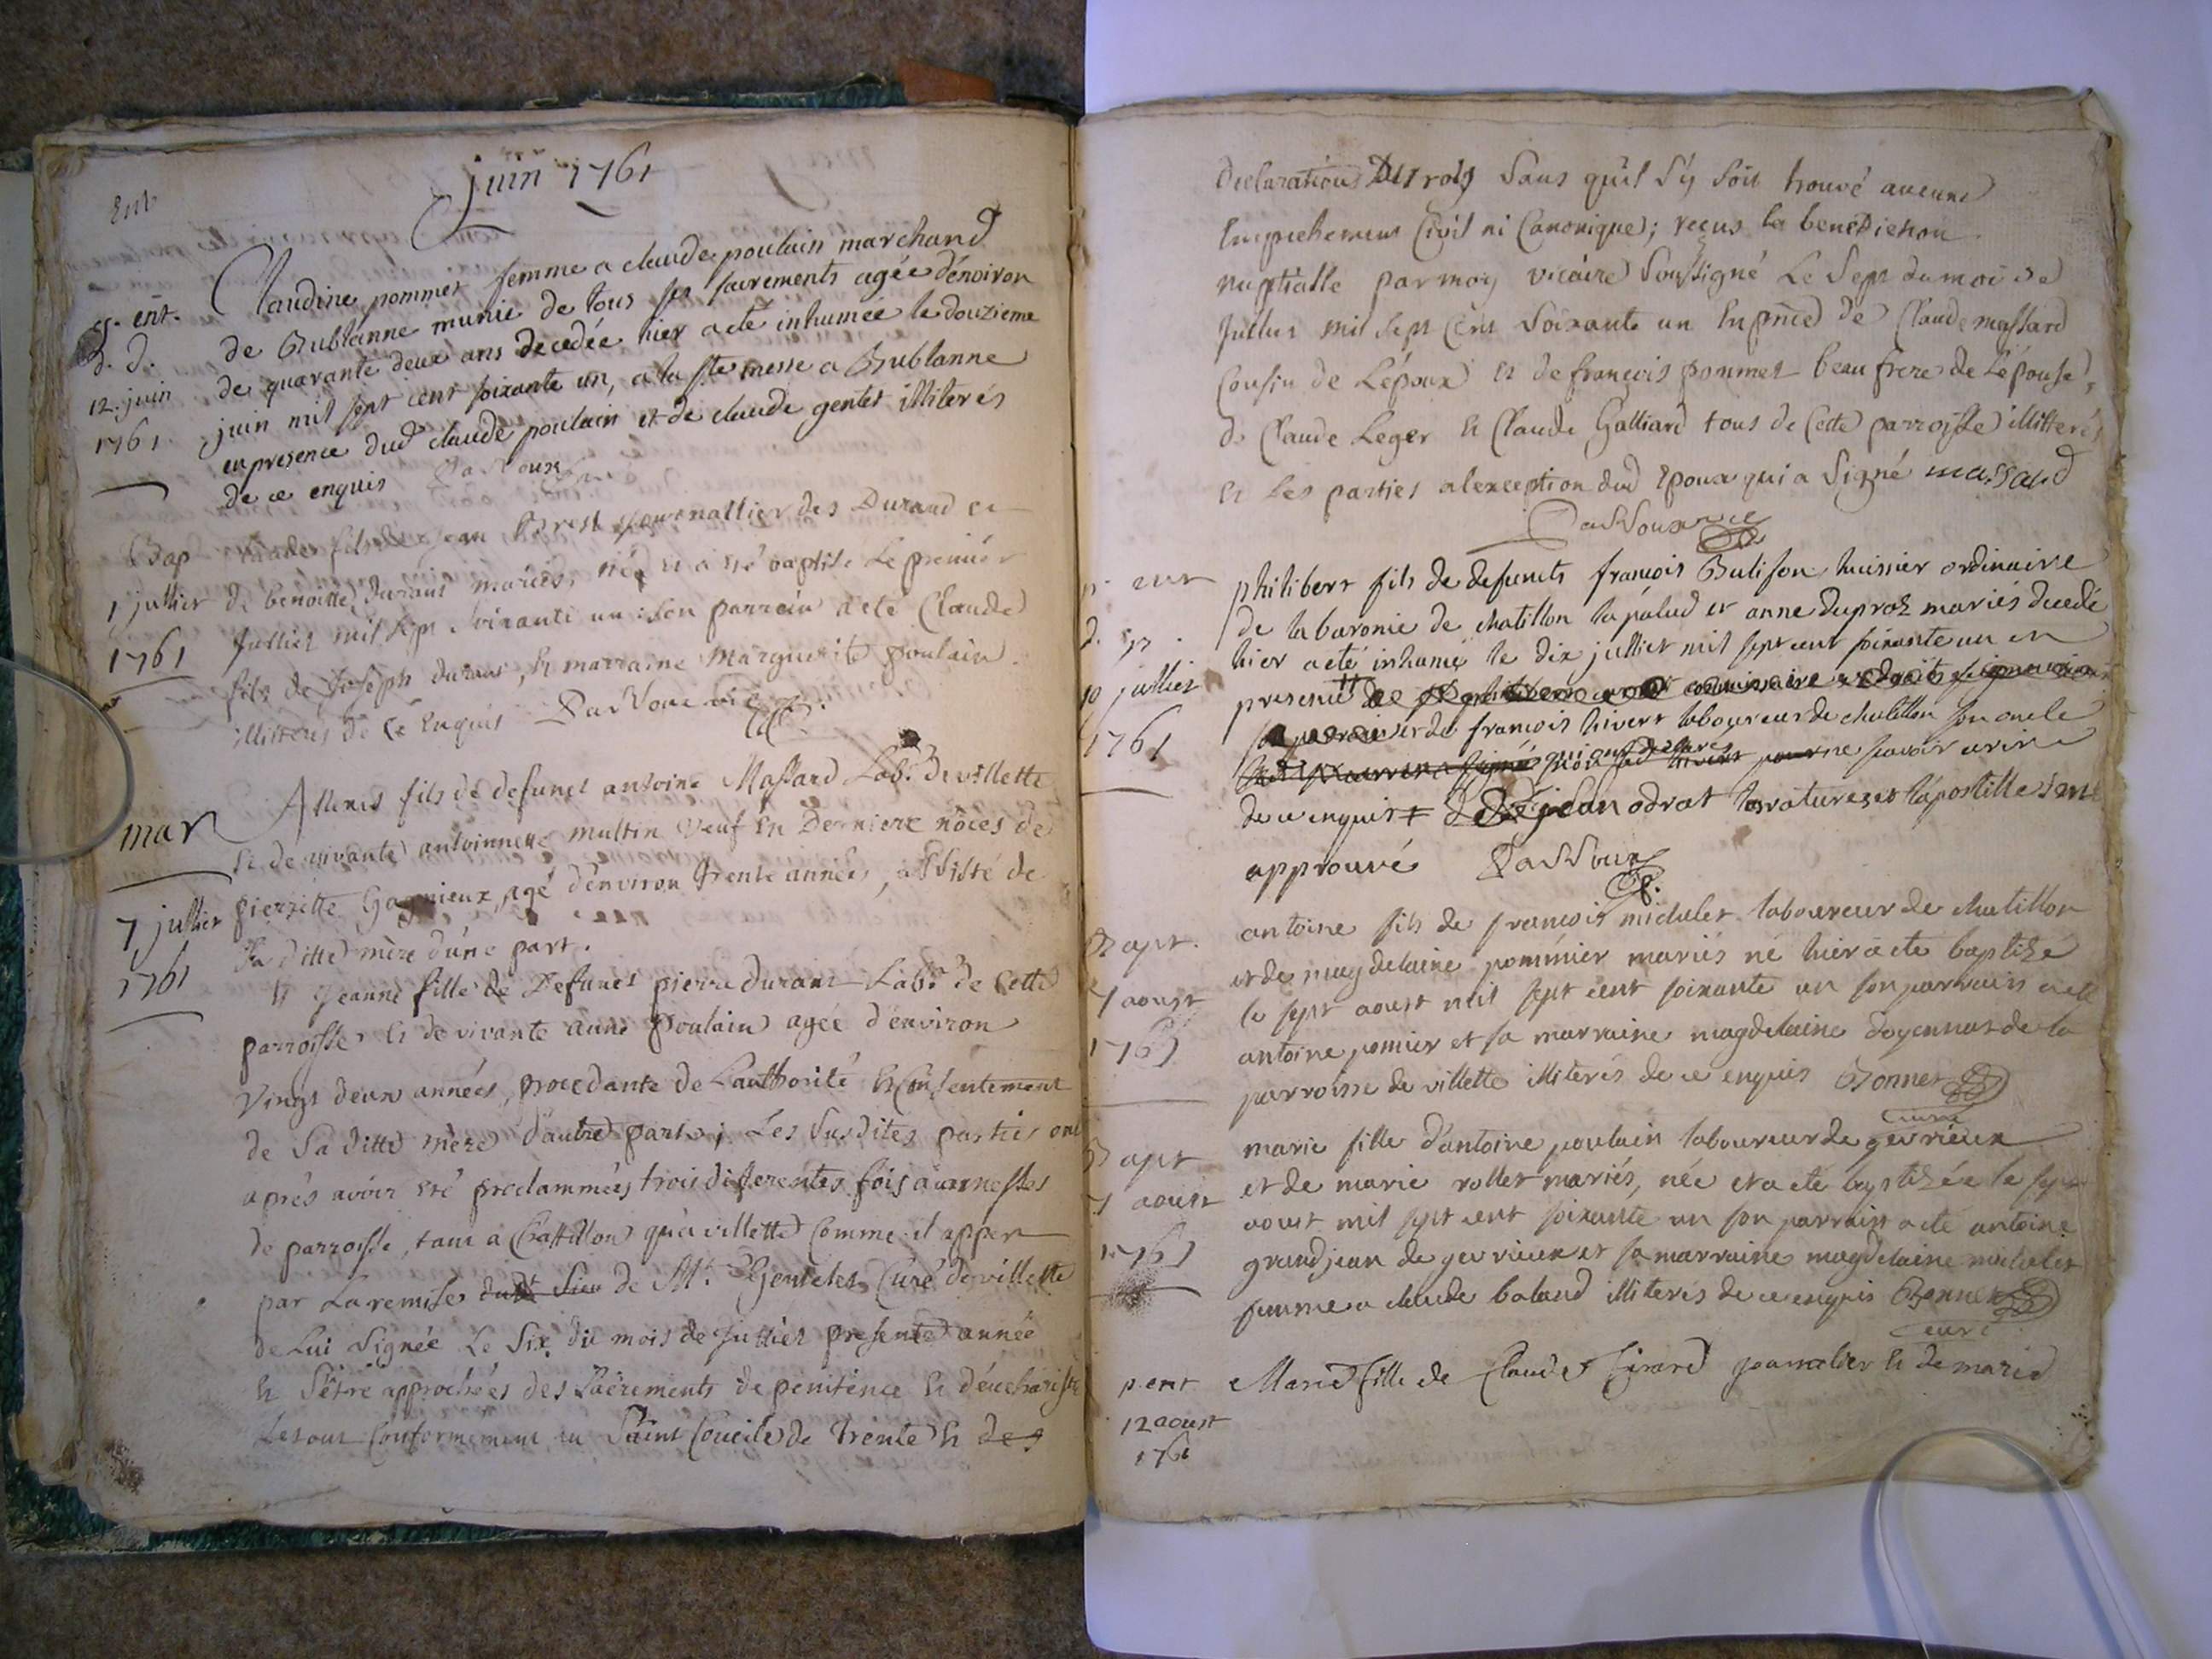 juin 1761
Ent.
gr. ent. Claudine pommet femme a claude poulain marchand
d. d. de Bublanne munie de tous ses sacrements agée d'environ
12. juin de quarante deux ans decedée hier a eté inhumée le douzieme
1761 juin mil sept cent soixante un, a la ste messe a Bublanne
en presence dud claude poulain et de claude gentet illiterés
de ce enquis
Bap Claude fils de jean journallier des Durand et
1 jullier de benoitte durant mariés, né et a eté baptisé Le premier
1761 Julliet mil sept soixante un: Son parrain a eté Claude
fils de Joseph durant, et marraine Marguerite poulain
illitterés de ce enquis
mar Allexis fils de defunct antoine Massard Labr. de villette
et de vivante antoinette multin veuf en Derniere nôces de
7 jullier pierrette Gagnieux, agé d'environ trente années, assisté de
1761 Sa ditte mère d'une part.
et Jeanne fille de Defunct pierre durant Labr. de Cette
parroisse et de vivante anne Poulain agée d'environ
Vingt deux années, procedante de Lauthorité et Consentement
de Sa ditte mère d'autre part; Les Susdites parties ont
aprés avoir eté proclammées trois differentes fois aux messes
de parroisse, tant a Chattillon qu'a villette Comme il appert
par La remise dudt Sieur de Mr. Gentelet Curé de villette
de Lui Signée Le Six du mois de Julliet presente année
et S'être approchées des Sacrements de penitence et d'eucharistie
Le tout Conformement au Saint Concile de Trente et des
declarations Des roys Sans qu'il S'y Soit trouvé aucuns
Empechement Civil ni Canonique; reçus la benediction
nuptialle par moy vicaire Soussigné Le Sept du moi de
Julliet mil sept Cent Soixante un En pnce de Claude massard
Cousin de L'époux et de françois pommet beau frere de L'épouse,
de Claude Leger et Claude Galliard tous de Cette parroisse illitterés
et Les parties a lexception dud Epoux qui a Signé massard
p. ent philibert fils de defuncts françois Bulison huissier ordinaire
d. gr. de la baronie de chatillon la palud et anne duproz mariés decedé
10 jullier hier a eté inhumé le dix julliet mil sept cent soixante un en
presence
1761 et de françois hivert laboureur de chatillon son oncle
ne scavoir ecrire
de ce enquis jean odrat les ratures et l'apostille sont
approuvé
Bapt. antoine fils de françois midulet laboureur de chatillon
et de magdelaine pommier mariés né hier a eté baptizé
7 aoust le sept aoust mil sept cent soixante un son parrain a eté
1761 antoine pomier et sa marraine magdelaine doyennat de la
parroisse de villette illiterés de ce enquis Bonnet
curé
Bapt marie fille d'antoine poulain laboureur de gevrieux
7 aoust et de marie rollet mariés, née et a eté baptizée le sept
aoust mil sept cent soixante un son parrain a eté antoine
1761 grandjean de gevrieux et sa marraine magdelaine midulet
femme a claude baland illiterés de ce enquis Bonnet
curé
p. ent Marie fille de Claude Girard journalier et de marie
12 aoust
1761